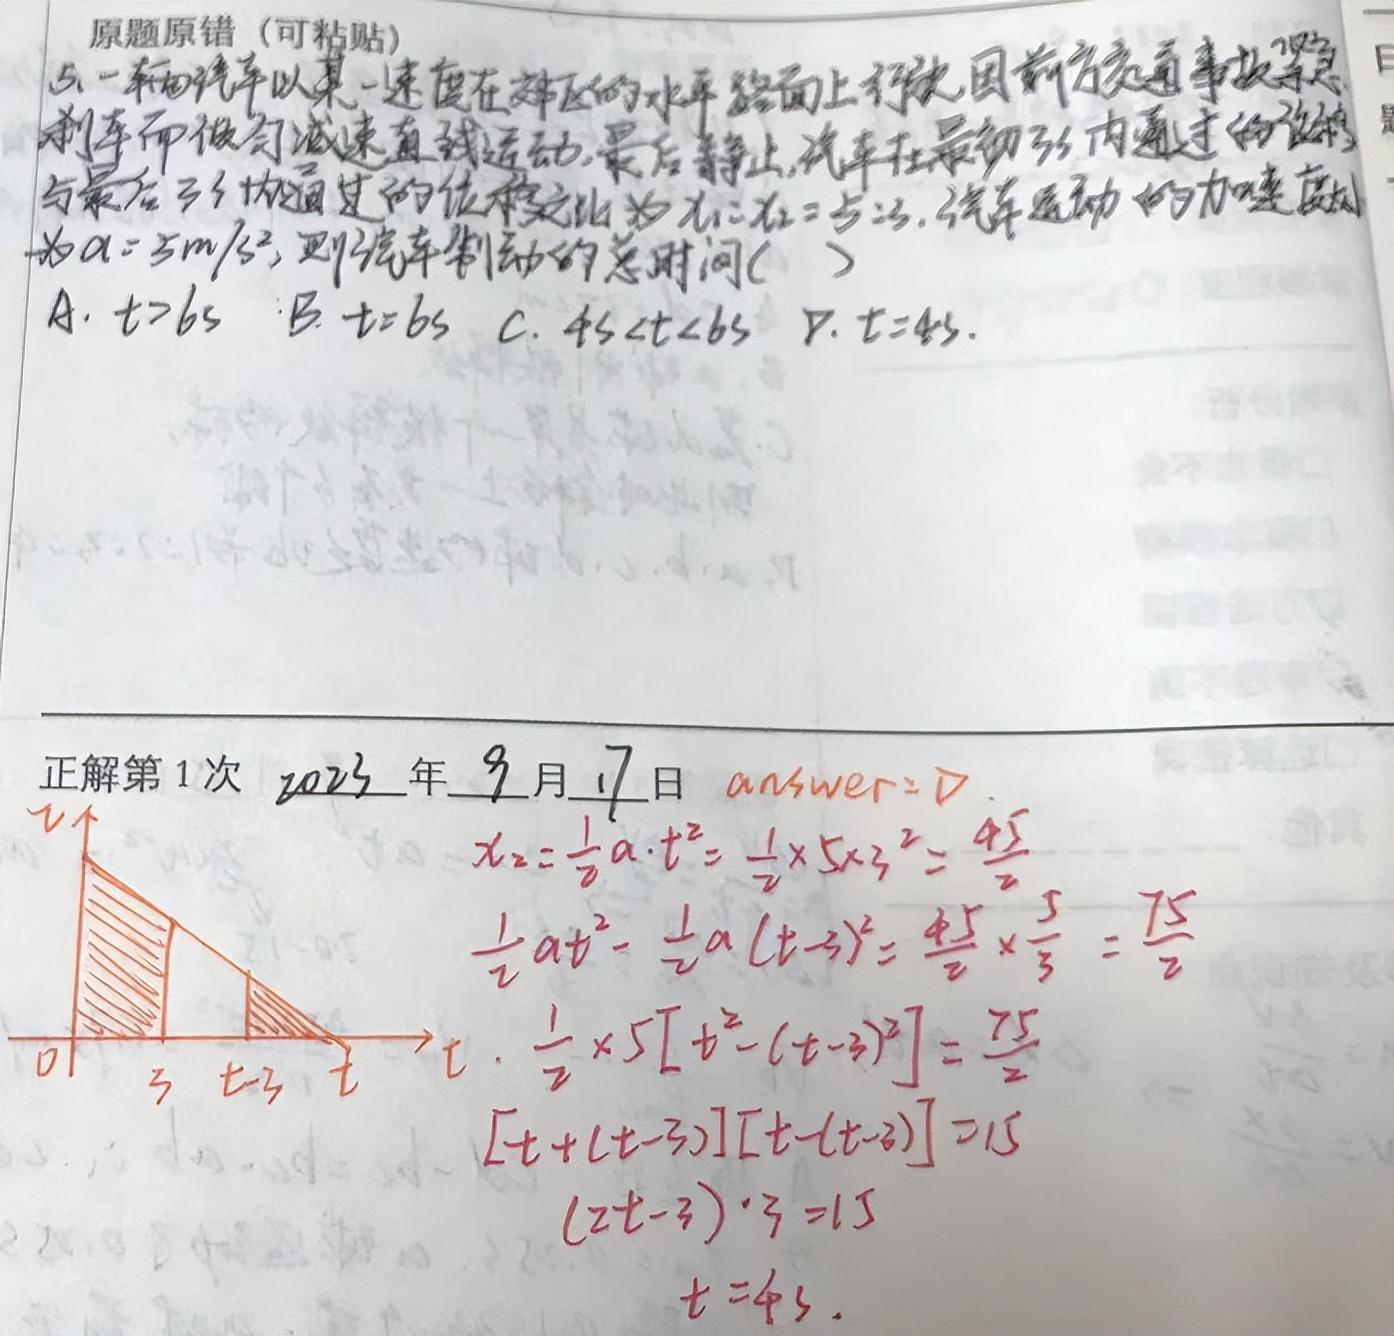 原题原错（可粘贴）
5. 一辆汽车以某一速度在郊区的水平路面上行驶,因前方交通事故紧急
刹车而做匀减速直线运动,最后静止,汽车在最初3s内通过的位移
与最后3s内通过的位移之比为x₁:x₂=5:3,汽车运动的加速度大小
为a=5m/s²,则汽车制动的总时间( )
A. t>6s B. t=6s C. 4s<t<6s D. t=4s.
正解第1次 2023年9月17日 answer=D.
v
x₂=½a·t²=½×5×3²=45/2
½at²-½a(t-3)²=45/2×5/3=75/2
0 3 t-3 t t
½×5[t²-(t-3)²]=75/2
[t+(t-3)][t-(t-3)]=15
(2t-3)·3=15
t=4s.